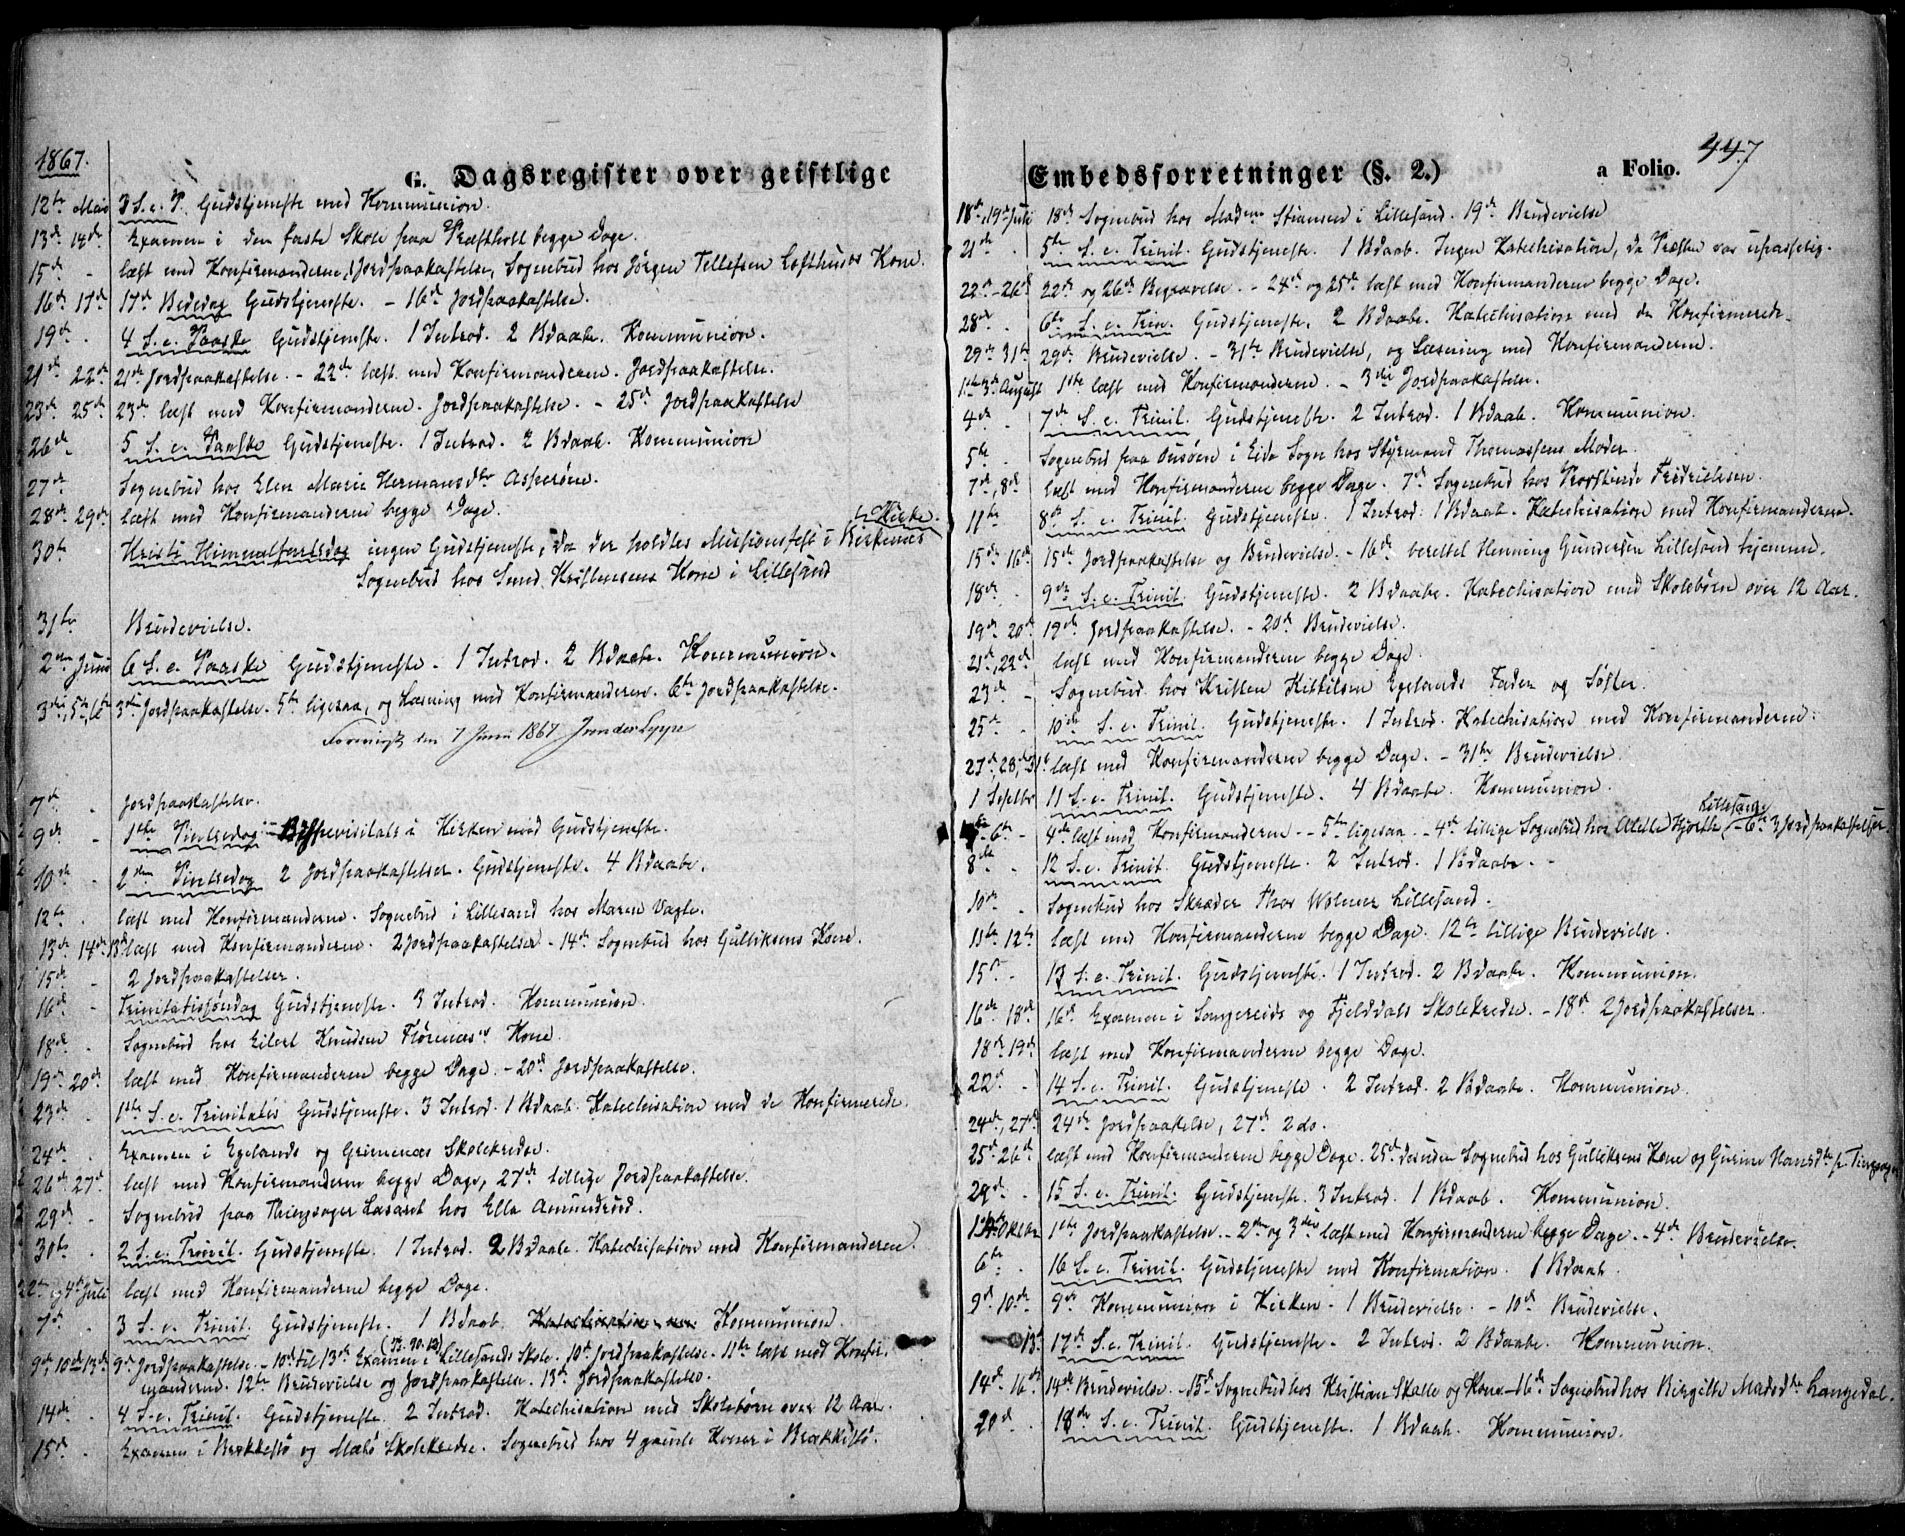 1867.
G. Dagsregister over geistlige
12te Mai 3 S. e. P. Gudstjeneste med Kommunion.
13de 14de Examen i den faste Skole paa Præstholt begge Dage.
15de - læst med Konfirmanderne, Jordpaakastelse, Sognebud hos Jørgen Tellefsen Lofthuses Kone.
16de 17de 17de Bededag Gudstjeneste. - 16de Jordpaakastelse.
19de - 4 S. e. Paaske Gudstjeneste. 1 Introd. 2 Bdaabe. Kommunion.
21de 22de 21de Jordpaakastelse. - 22de læst med Konfirmanderne. Jordpaakastelse.
23de 25de 23de læst med Konfirmanderne. Jordpaakastelse. - 25de Jordpaakastelse
26de 5 S. e. Paaske Gudstjeneste. 1 Introd. 2 Bdaab. Kommunion
27de Sognebud hos Elen Marie Hermansdtr Asperøen.
28de 29de læst med Konfirmanderne begge Dage.
30te Kristi Himmelfartsdag ingen Gudstjeneste, da der holdtes Missionsfest i Birkenes Kirke.
Sognebud hos Smed Kristensens Kone i Lillesand
31te Brudevielse.
2den Juni 6 S. e. Paaske Gudstjeneste. 1 Introd. 2 Bdaabe. Kommunion.
3die, 5te, 6te 3die Jordpaakastelse. 5te ligesaa, og Læsning med Konfirmanderne. 6te Jordpaakastelse.
Forevist den 7 Juni 1867
7de - Jordpaakastelse.
9de - 1ste Pintsedag - Bispevisitats i Kirken med Gudstjeneste.
10de - 2den Pintsedag 2 Jordpaakastelser. Gudstjeneste. 4 Bdaabe.
12te - læst med Konfirmanderne. Sognebud i Lillesand hos Maren Vagle.
13de 14de 13de læst med Konfirmanderne. 2 Jordpaakastelser - 14de Sognebud hos Gulliksens Kone.
15de - 2 Jordpaakastelser.
16de - Trinitatissøndag Gudstjeneste. 3 Introd. Kommunion.
18de - Sognebud hos Eilert Knudsen Flørenæs's Kone.
19de 20de læst med Konfirmanderne begge Dage. - 20de Jordpaakastelse.
23de - 1ste S. e. Trinitatis Gudstjeneste. 3 Introd. 1 Bdaab. Katechisation med de Konfirmerede.
24de - Examen i Egelands og Grimenæs Skolekredse.
26de 27de læst med Konfirmanderne begge Dage, 27de tillige Jordpaakastelse.
29de - Sognebud paa Thingsager Lazaret hos Ella Amundrød.
30te - 2 S. e. Trinit. Gudstjeneste. 1 Introd. 2 Bdaabe. Katechisation med Konfirmanderne.
2de og 4de Juli læst med Konfirmanderne begge Dage.
7de - 3 S. e. Trinit. Gudstjeneste. 1 Bdaab. Katechisation Kommunion.
9de, 10de-13de 9de Jordpaakastelse. - 10de til 13de Examen i Lillesands Skole. 10de Jordpaakastelse. 11te læst med Konfir-
manderne. 12te Brudevielse og Jordpaakastelse. 13de Jordpaakastelse.
14de - 4 S. e. Trinit. Gudstjeneste. 2 Introd. Katechisation med Skolebørn over 12 Aar.
15de - Examen i Brækkestø og Skolekredse. Sognebud hos 4 gamle Koner i Brækkestø.
Embedsforretninger (§. 2.) a Folio. 447
18de, 19de Juli 18de Sognebud hos Madm Stiansen i Lillesand. 19de Brudevielse
21de - 5te S. e. Trinit. Gudstjeneste. 1 Bdaab. Ingen Katechisation, da Præsten var upasselig.
22de-26de 22de og 26de Begravelse. - 24de og 25de læst med Konfirmanderne begge Dage.
28de - 6te S. e. Trin. Gudstjeneste. 2 Bdaabe. Katechisation med de Konfirmerede.
29de 31te 29de Brudevielse. - 31te Brudevielse, og Læsning med Konfirmanderne.
1ste 3die August 1ste læst med Konfirmanderne. - 3die Jordpaakastelse.
4de - 7de S. e. Trinit. Gudstjeneste. 2 Introd. 1 Bdaab. Kommunion.
5te - Sognebud paa i Eide Sogn hos Styrmand Thomassens Moder.
7de, 8de læst med Konfirmanderne begge Dage. 7de Sognebud hos Fredriksen.
11te 8de S. e. Trinit. Gudstjeneste. 1 Introd. 1 Bdaab. Katechisation med Konfirmanderne.
15de 16de 15de Jordpaakastelse og Brudevielse. - 16de berettet Henning Gundersen Lillesand hjemme.
18de - 9de S. e. Trinit. Gudstjeneste. 2 Bdaabe. Katechisation med Skolebørn over 12 Aar.
19de 20de 19de Jordpaakastelse. - 20de Brudevielse.
21de, 22de læst med Konfirmanderne begge Dage.
23de - Sognebud hos Kristen Kittilsen Egelands Fader og Søster.
25de - 10de S. e. Trinit. Gudstjeneste. 1 Introd. Katechisation med Konfirmanderne.
27de, 28de, 31te læst med Konfirmanderne begge Dage. - 31te Brudevielse.
1 Septbr 11 S. e. Trinit. Gudstjeneste. 4 Bdaabe. Kommunion.
6te - 4de læst med Konfirmanderne. - 5te ligesaa. - 4de tillige Sognebud hos Alette Hjorth Lillesand, - 6te 3 Jordpaakastelser.
8de - 12 S. e. Trinit. Gudstjeneste. 2 Introd. 1 Bdaabe. -
10de - Sognebud hos Skræder Thor Wolmer Lillesand.
11te 12te læst med Konfirmanderne begge Dage. 12te tillige Brudevielse.
15de - 13 S. e. Trinit. Gudstjeneste. 1 Introd. 2 Bdaabe. Kommunion.
16de 18de 16de Examen i Sangereids og Fjelddals Skolekredse. - 18de 2 Jordpaakastelser.
18de 19de læst med Konfirmanderne begge Dage.
22de - 14 S. e. Trinit. Gudstjeneste. 2 Introd. 2 Bdaabe. Kommunion.
24de, 27de 24de Jordpaakelse, 27de 2 do.
25de 26de læst med Konfirmanderne begge Dage. 25de desuden Sognebud hos Gulliksens Kone og Gurine Hansdtr p. Tingsager
29de - 15 S. e. Trinit. Gudstjeneste. 3 Introd. 1 Bdaab. Kommunion.
1-4 Oktbr 1ste Jordpaakastelse. - 2den og 3die læst med Konfirmanderne begge Dage. - 4de Brudevielse.
6te - 16 S. e. Trinit. Gudstjeneste med Konfirmation. 1 Bdaab.
9de 10de 9de Kommunion i Kirken. 1 Brudevielse. - 10de Brudevielse.
13de 17de S. e. Trinit. Gudstjeneste. 2 Introd. 2 Bdaabe. Kommunion.
14de 16de 14de Brudevielse. - 15de Sognebud hos Kristian Skalle og Kone - 16de Sognebud hos Birgitte Madsdtr Langedal.
20de 18de S. e. Trinit. Gudstjeneste. 1 Bdaab. Kommunion.